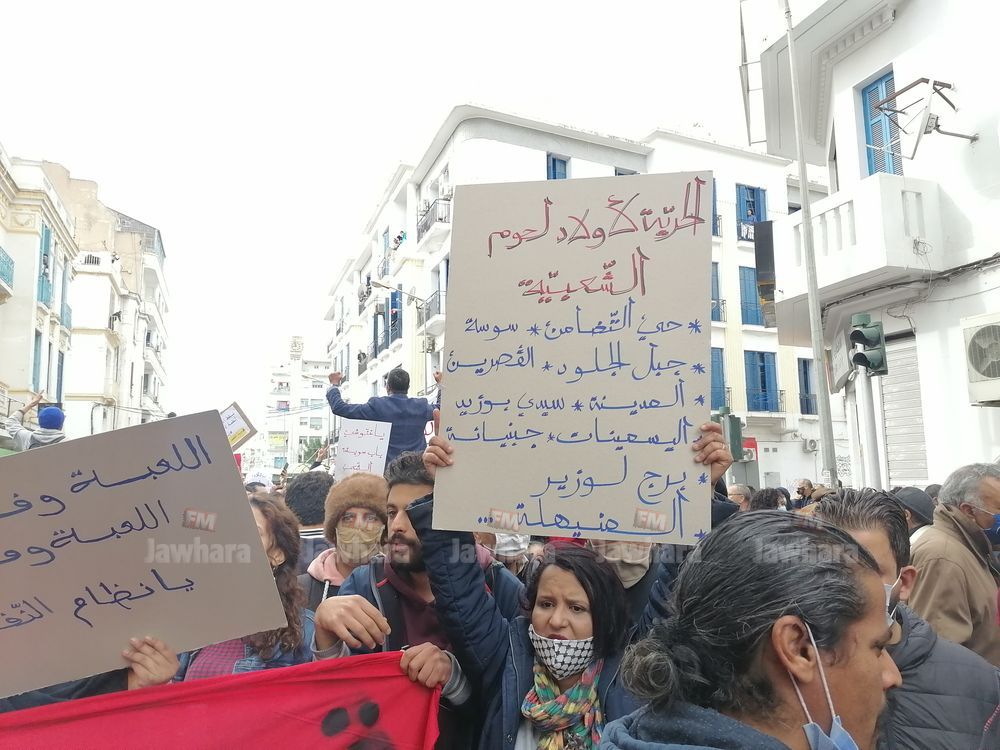 الحريّة لأولاد لحوم
الشّعبيّة
* حيّ التّضامن * سوسة
* جبل الجلود * القصرين
* المدينة * سيدي بوزيد
* اليسمينات * جبنيانة
* برج لوزير
* المنيهلة ...
اللعبة وف
اللعبة وو
يا نظام التّف
باب سويقة
FM
Jawhara
FM
Jawhara
FM
Jawhara
FM
Jawhara